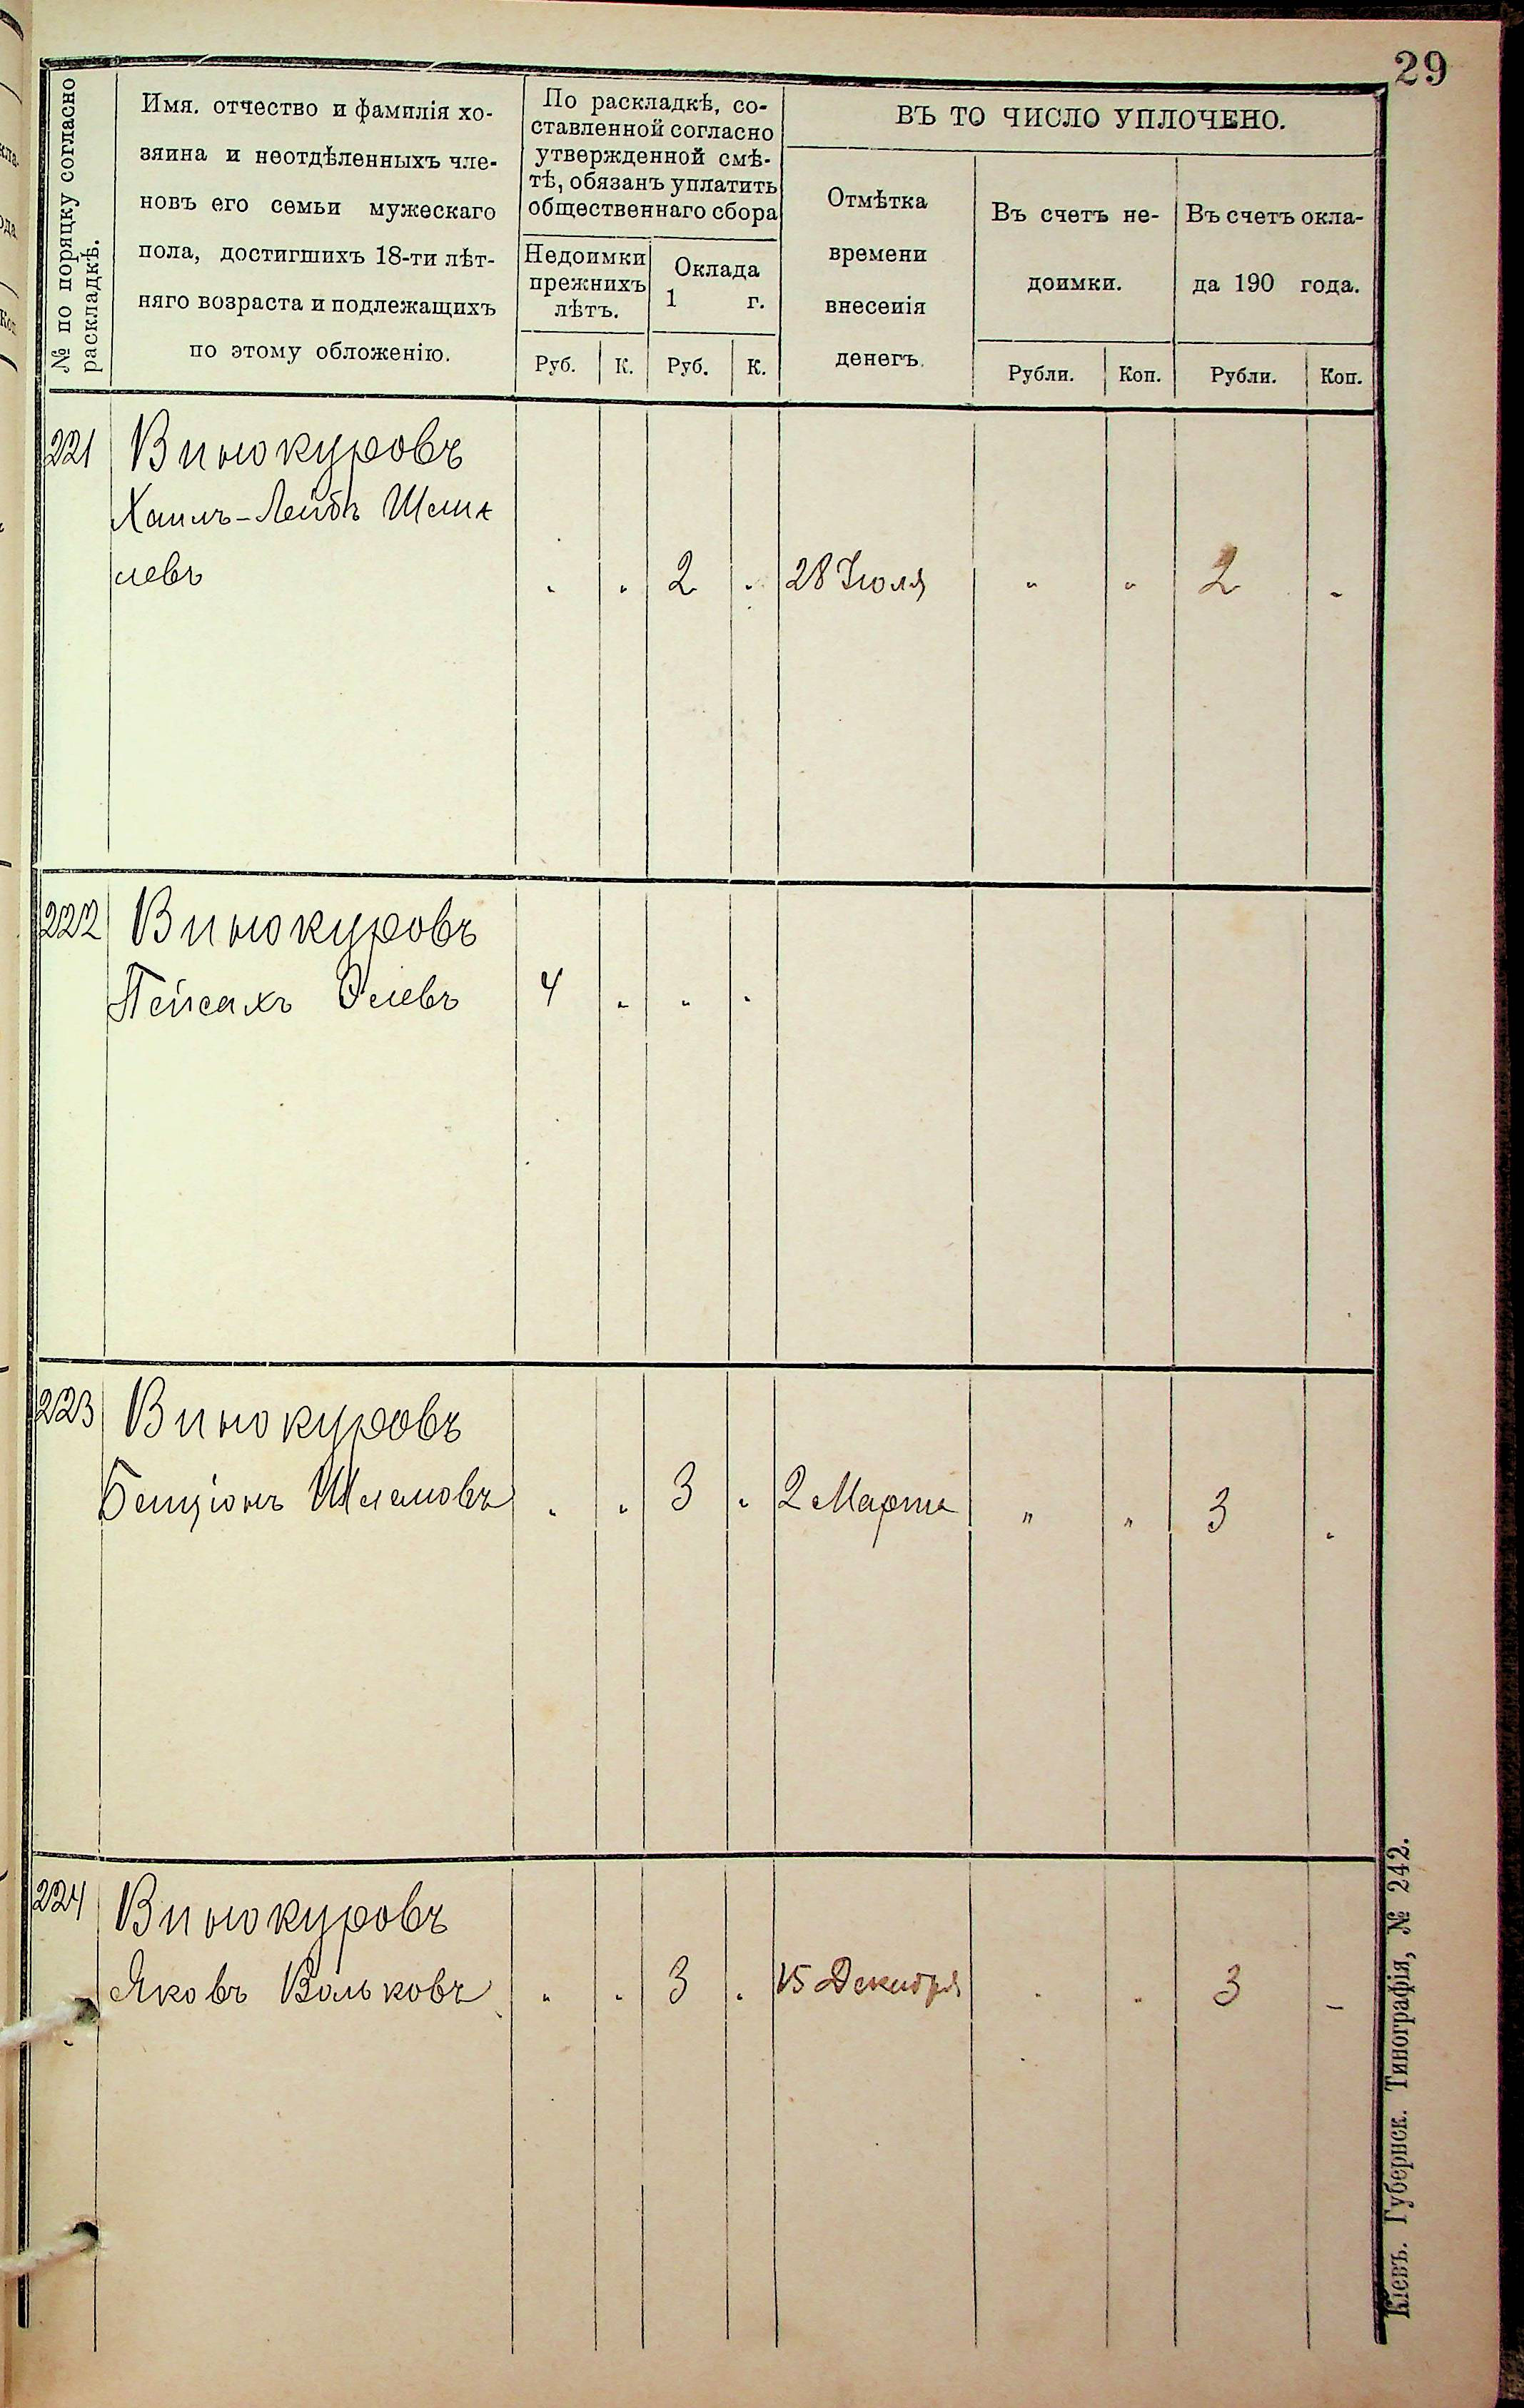 29
№ по поряцку согласно
раскладкѣ.
Имя. отчество и фамилія хо-
зяина и неотдѣленныхъ чле-
новъ его семьи мужескаго
пола, достигшихъ 18-ти лѣт-
няго возраста и подлежащихъ
по этому обложенію.
По раскладкѣ, со-
ставленной согласно
утвержденной смѣ-
тѣ, обязанъ уплатить
общественнаго сбора
Недоимки
прежнихъ
лѣтъ.
Оклада
1 г.
Руб. К. Руб. К.
ВЪ ТО ЧИСЛО УПЛОЧЕНО.
Отмѣтка
времени
внесенія
денегъ.
Въ счетъ не-
доимки.
Въ счетъ окла-
да 190 года.
Рубли. Коп. Рубли. Коп.
221 Винокуровъ
Хаимъ-Лейбъ
левъ " " 2 " 28 Іюля " " 2 "
222 Винокуровъ
Пейсахъ 4 " " "
223 Винокуровъ
Бенціонъ Шлемовъ " " 3 " 2 Марта " " 3 "
224 Винокуровъ
Яковъ Вольковъ " " 3 " 15 Декабря " " 3 -
Кіевъ. Губернск. Типографія, № 242.